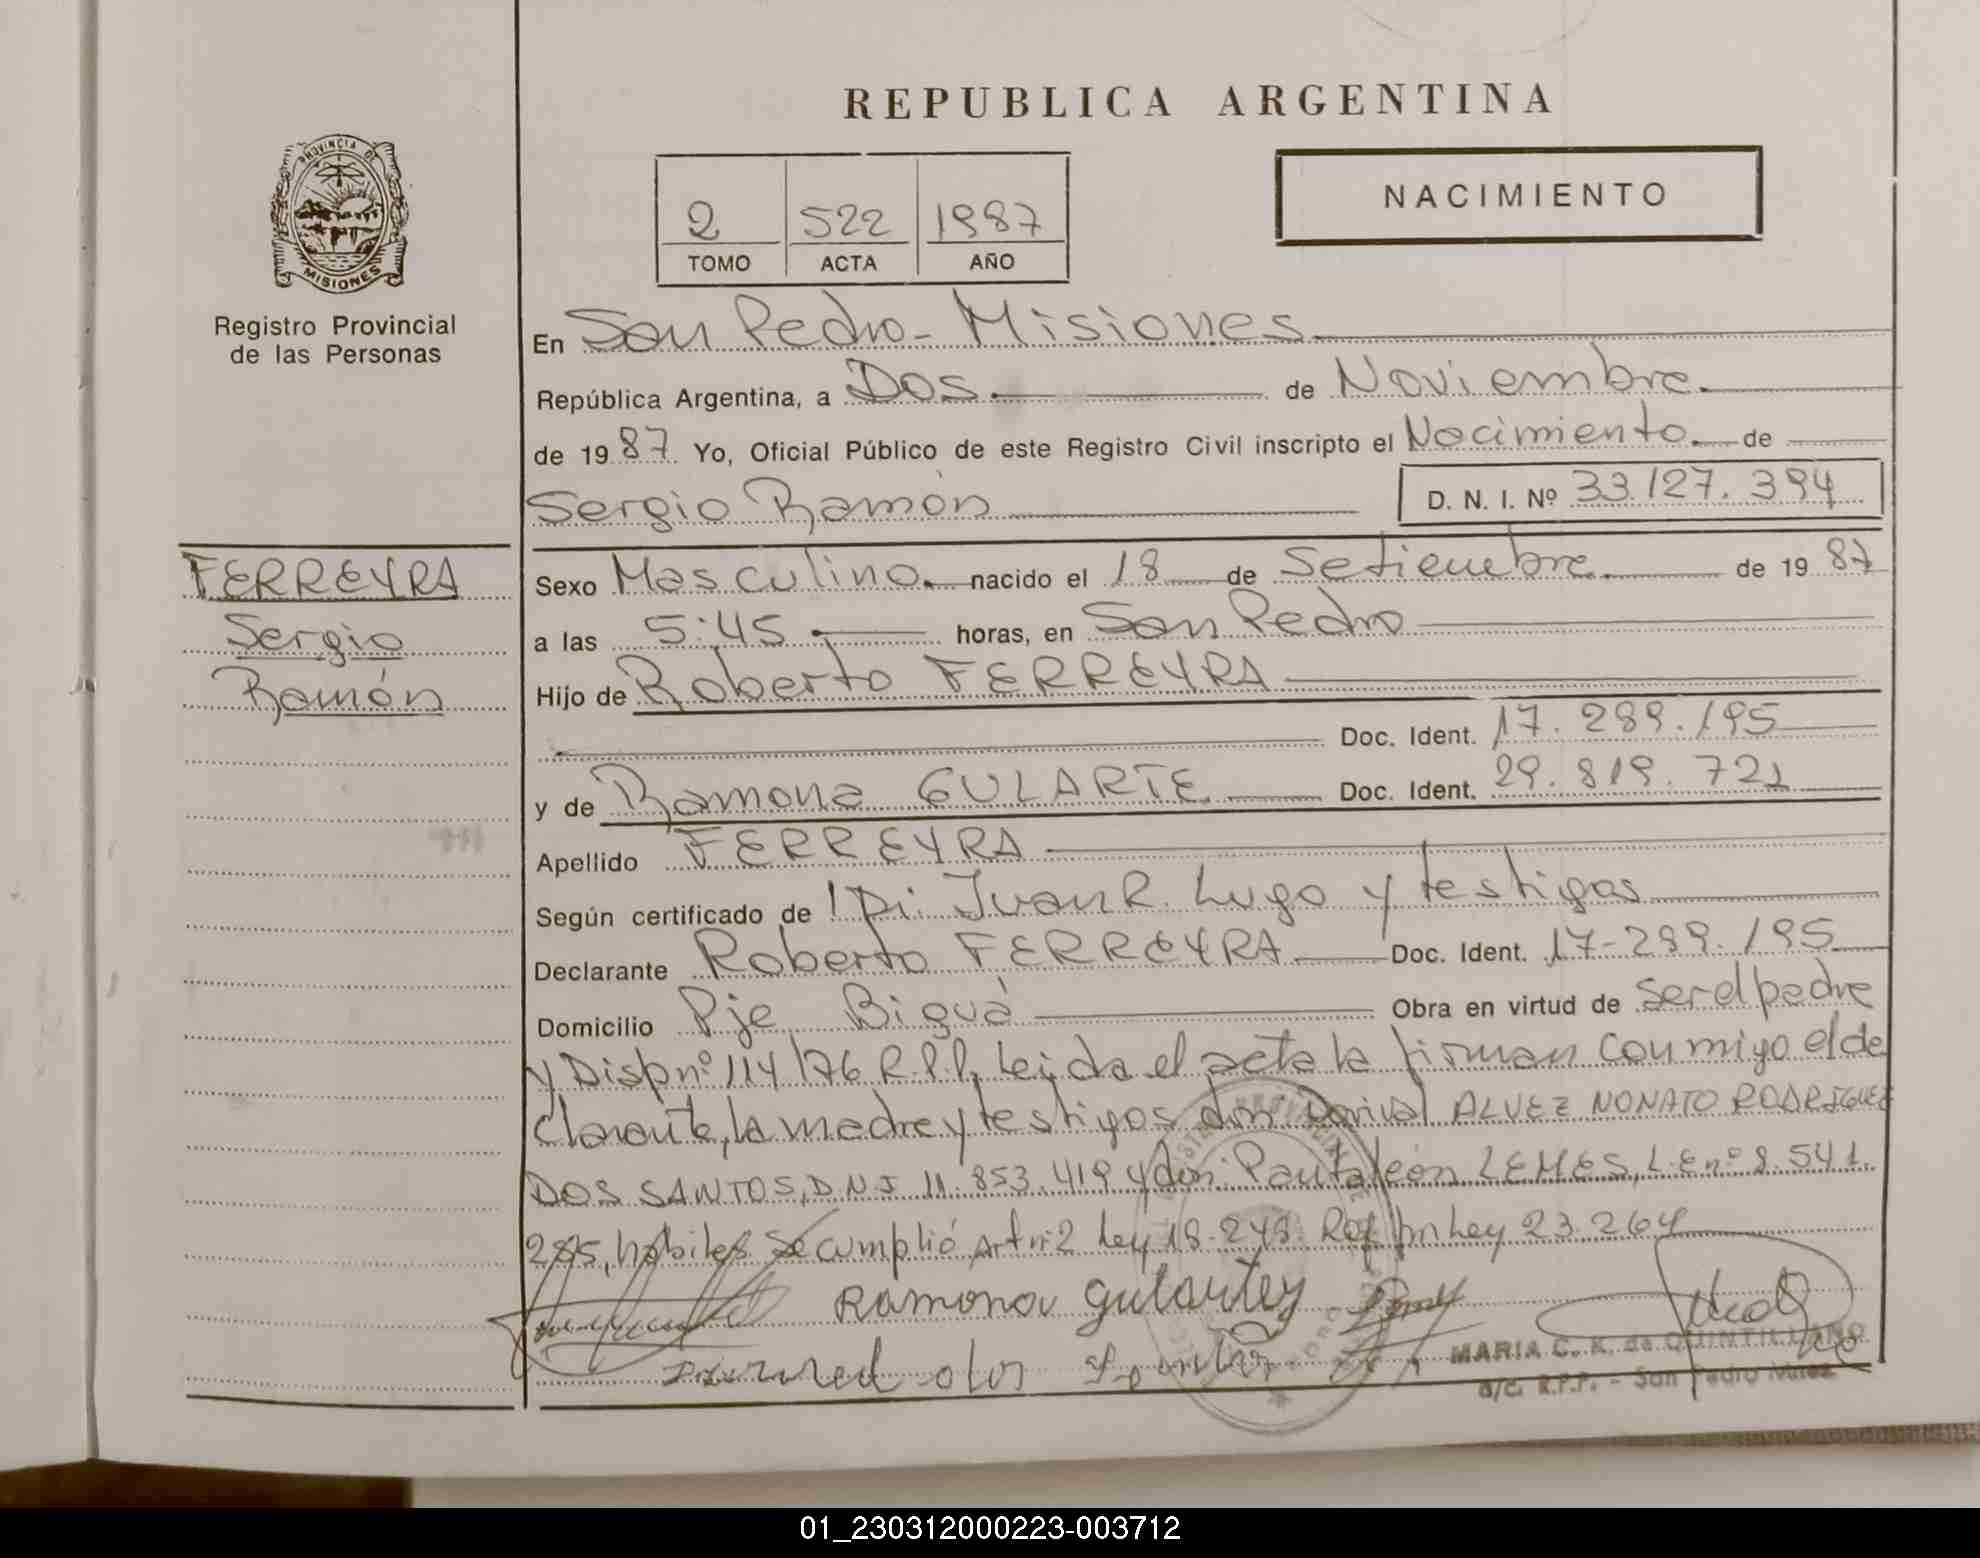 REPUBLICA ARGENTINA
PROVINCIA DE
MISIONES
Registro Provincial
de las Personas
2 522 1987
TOMO ACTA AÑO
NACIMIENTO
En San Pedro - Misiones
República Argentina, a Dos de Noviembre
de 1987 Yo, Oficial Público de este Registro Civil inscripto el Nacimiento de
Sergio Ramón D. N. I. Nº 33.127.394
FERREYRA
Sergio
Ramón
Sexo Masculino nacido el 18 de Setiembre de 1987
a las 5:45 horas, en San Pedro
Hijo de Roberto FERREYRA
Doc. Ident. 17.289.195
y de Ramona GULARTE Doc. Ident. 29.819.721
Apellido FERREYRA
Según certificado de IPi. Juan R. Lugo y testigos
Declarante Roberto FERREYRA Doc. Ident. 17-289.195
Domicilio Pje Biguá Obra en virtud de ser el padre
y Disp nº 114/76 R.P.P. Leida el acta la firman conmigo el de
clarante, la madre y testigos don Dorival ALVEZ NONATO RODRIGUEZ
DOS SANTOS, D N I 11.853.419 y don Pantaleón LEMES, L.E nº 8.541.
285, hábiles. Se cumplió Art nº 2 Ley 18.248. Ref pn Ley 23.264
Ramona Gularte
MARIA C. K. de QUINTILLANO
a/c. R.P.P. - San Pedro Mnes
01_230312000223-003712